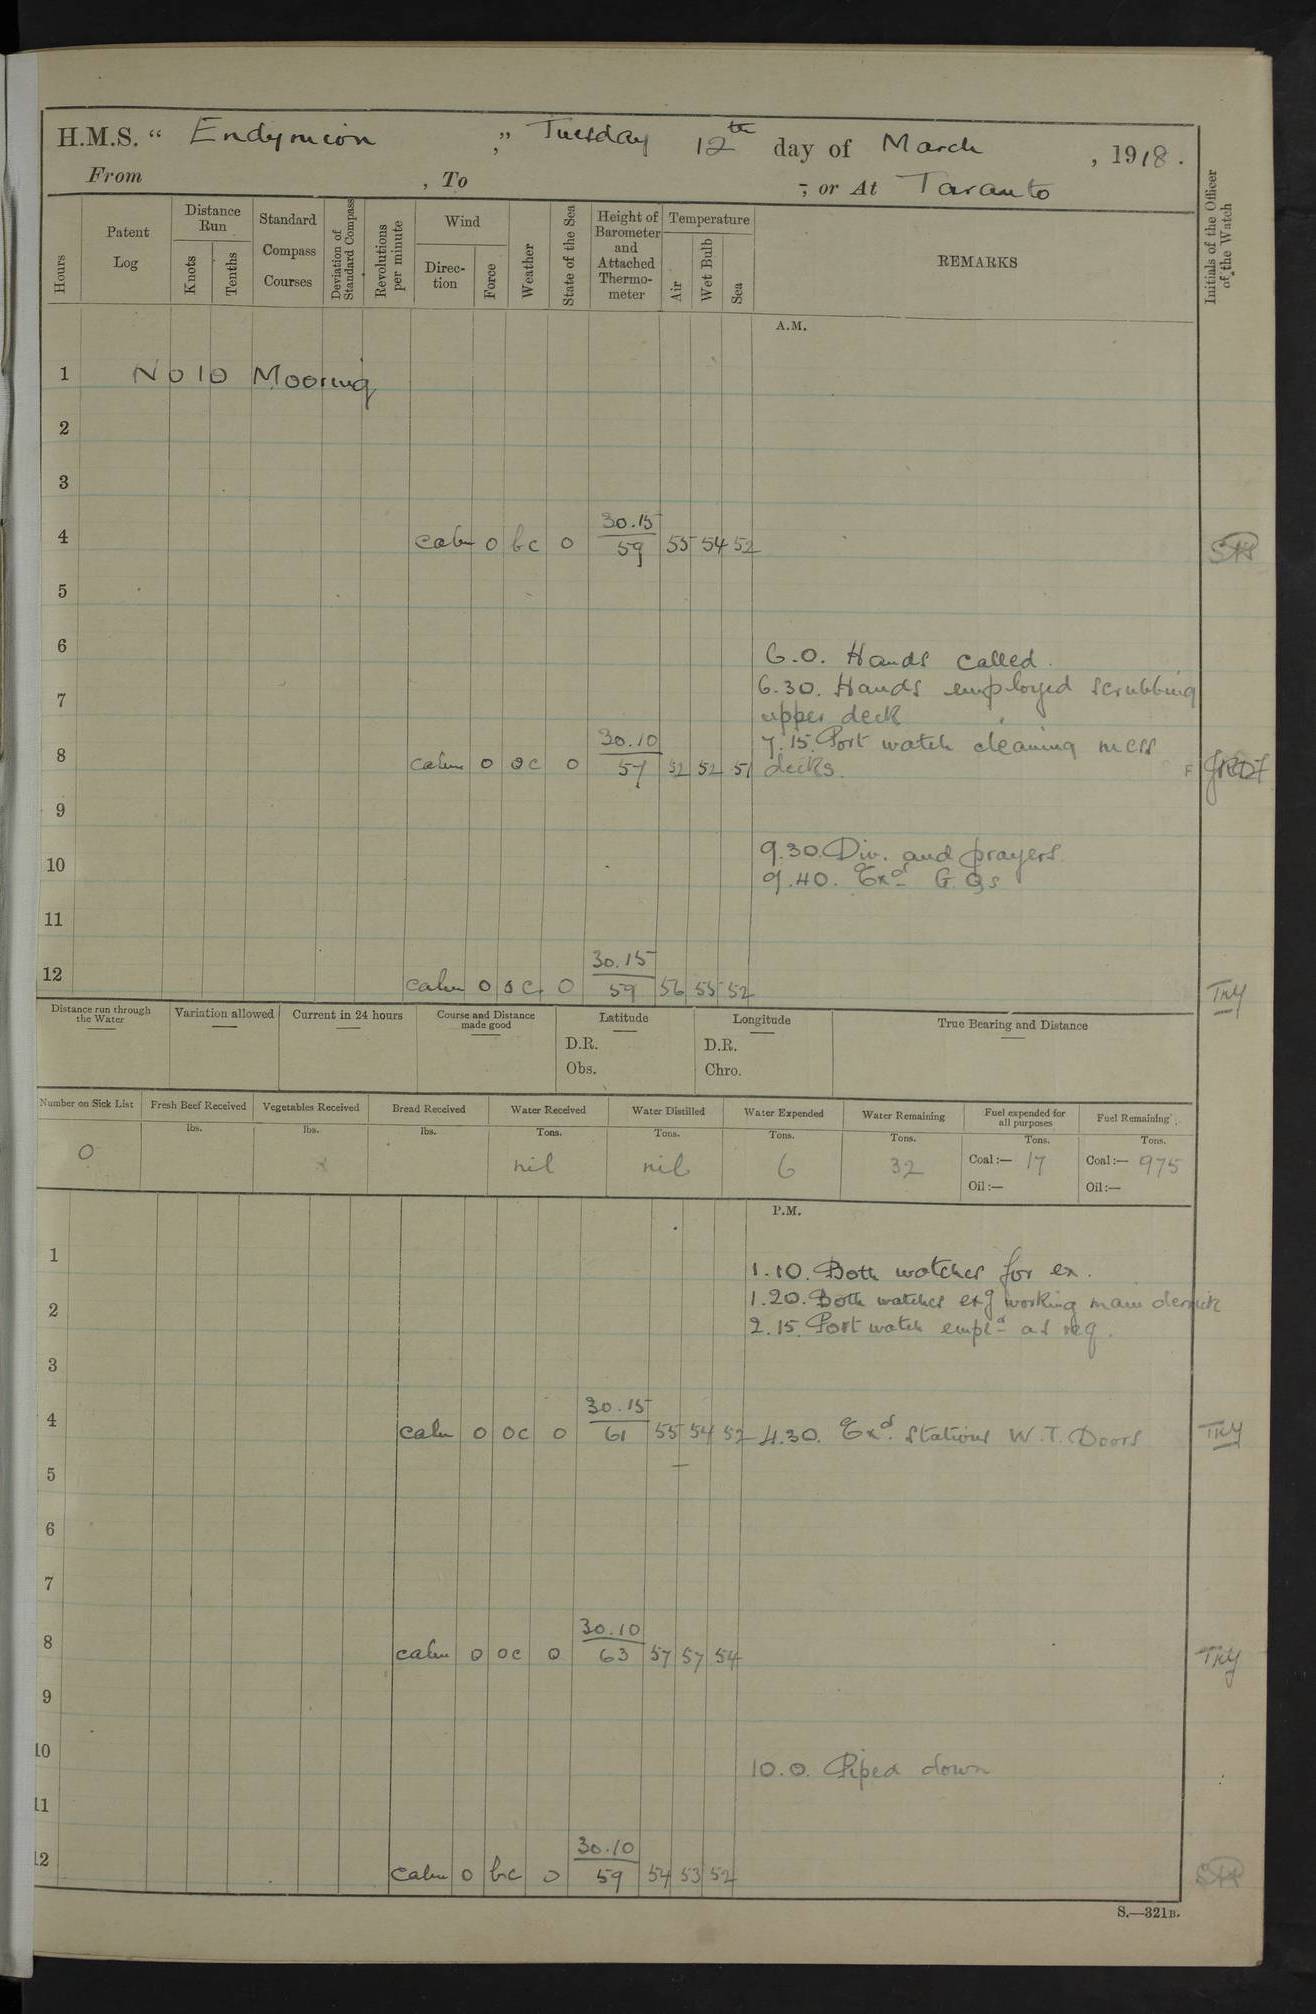 H.M.S. " Endymion ", Tuesday 12th day of March, 1918.
From , To , or At Taranto
Hours
Patent Log
Distance Run
Knots
Tenths
Standard Compass Courses
Deviation of Standard Compass
Revolutions per minute
Wind
Direction
Force
Weather
State of the Sea
Height of Barometer and Attached Thermometer
Temperature
Air
Wet Bulb
Sea
REMARKS
Initials of the Officer of the Watch
A.M.
1 No 10 Mooring
2
3
30.15
4 calm 0 bc 0 59 55 54 52
5
6 6.0. Hands called.
6.30. Hands employed scrubbing
7 upper deck
30.10 7.15. Port watch cleaning mess
8 calm 0 oc 0 57 52 52 51 decks.
9
9.30. Div. and prayers
10 9.40. Exd G.Qs
11
30.15
12 calm 0 oc 0 59 56 55 52 TKY
Distance run through the Water
Variation allowed
Current in 24 hours
Course and Distance made good
Latitude
D.R.
Obs.
Longitude
D.R.
Chro.
True Bearing and Distance
Number on Sick List
Fresh Beef Received
Vegetables Received
Bread Received
Water Received
Water Distilled
Water Expended
Water Remaining
Fuel expended for all purposes
Fuel Remaining
lbs. lbs. lbs. Tons. Tons. Tons. Tons. Tons. Tons.
0 nil nil 6 32 Coal:— 17 Coal:— 975
Oil:— Oil:—
P.M.
1 1.10. Both watches for ex.
1.20. Both watches exg working main derrick
2 2.15. Port watch empld as req.
3
30.15
4 calm 0 oc 0 61 55 54 52 4.30. Exd. Stations W.T. Doors TKY
5
6
7
30.10
8 calm 0 oc 0 63 57 57 54 TKY
9
10 10.0. Piped down
11
30.10
12 calm 0 bc 0 59 54 53 52
S.—321B.